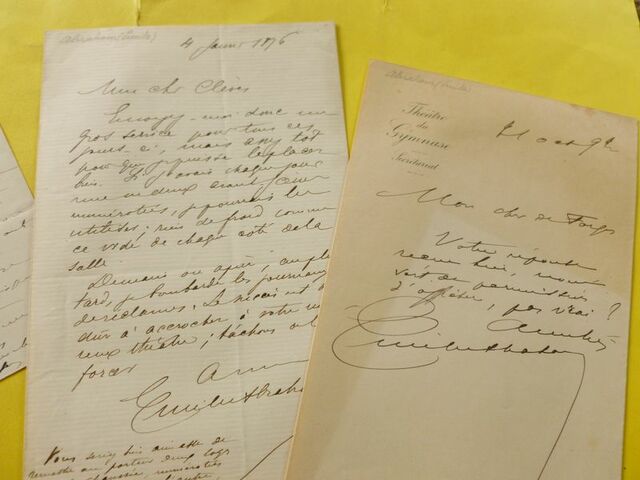 Abraham (Emile)
4 janvier 1876
Mon cher Clèves
Envoyez-moi donc un
gros service pour tous ces
jours-ci, mais assez tôt
pour que je puisse le placer
bien. Si j'avais chaque jour
une ou deux avant-scènes
numérotées, je pourrais les
utiliser; rien de froid comme
ce vide de chaque côté de la
salle.
Demain ou après, au plus
tard, je bombarde les journaux
de réclames. Le succès est
dur à accrocher à votre
reux théâtre; tâchons
forcer
Emile Abraham
Vous seriez bien aimable de
remettre au porteur deux
numérotées
Abraham (Emile)
Théâtre
du
Gymnase
Secrétariat
Mon cher de Forges
Votre réponse
reçue hier, nous
sert de permission
d'afficher, pas vrai?
Amitiés
Emile Abraham